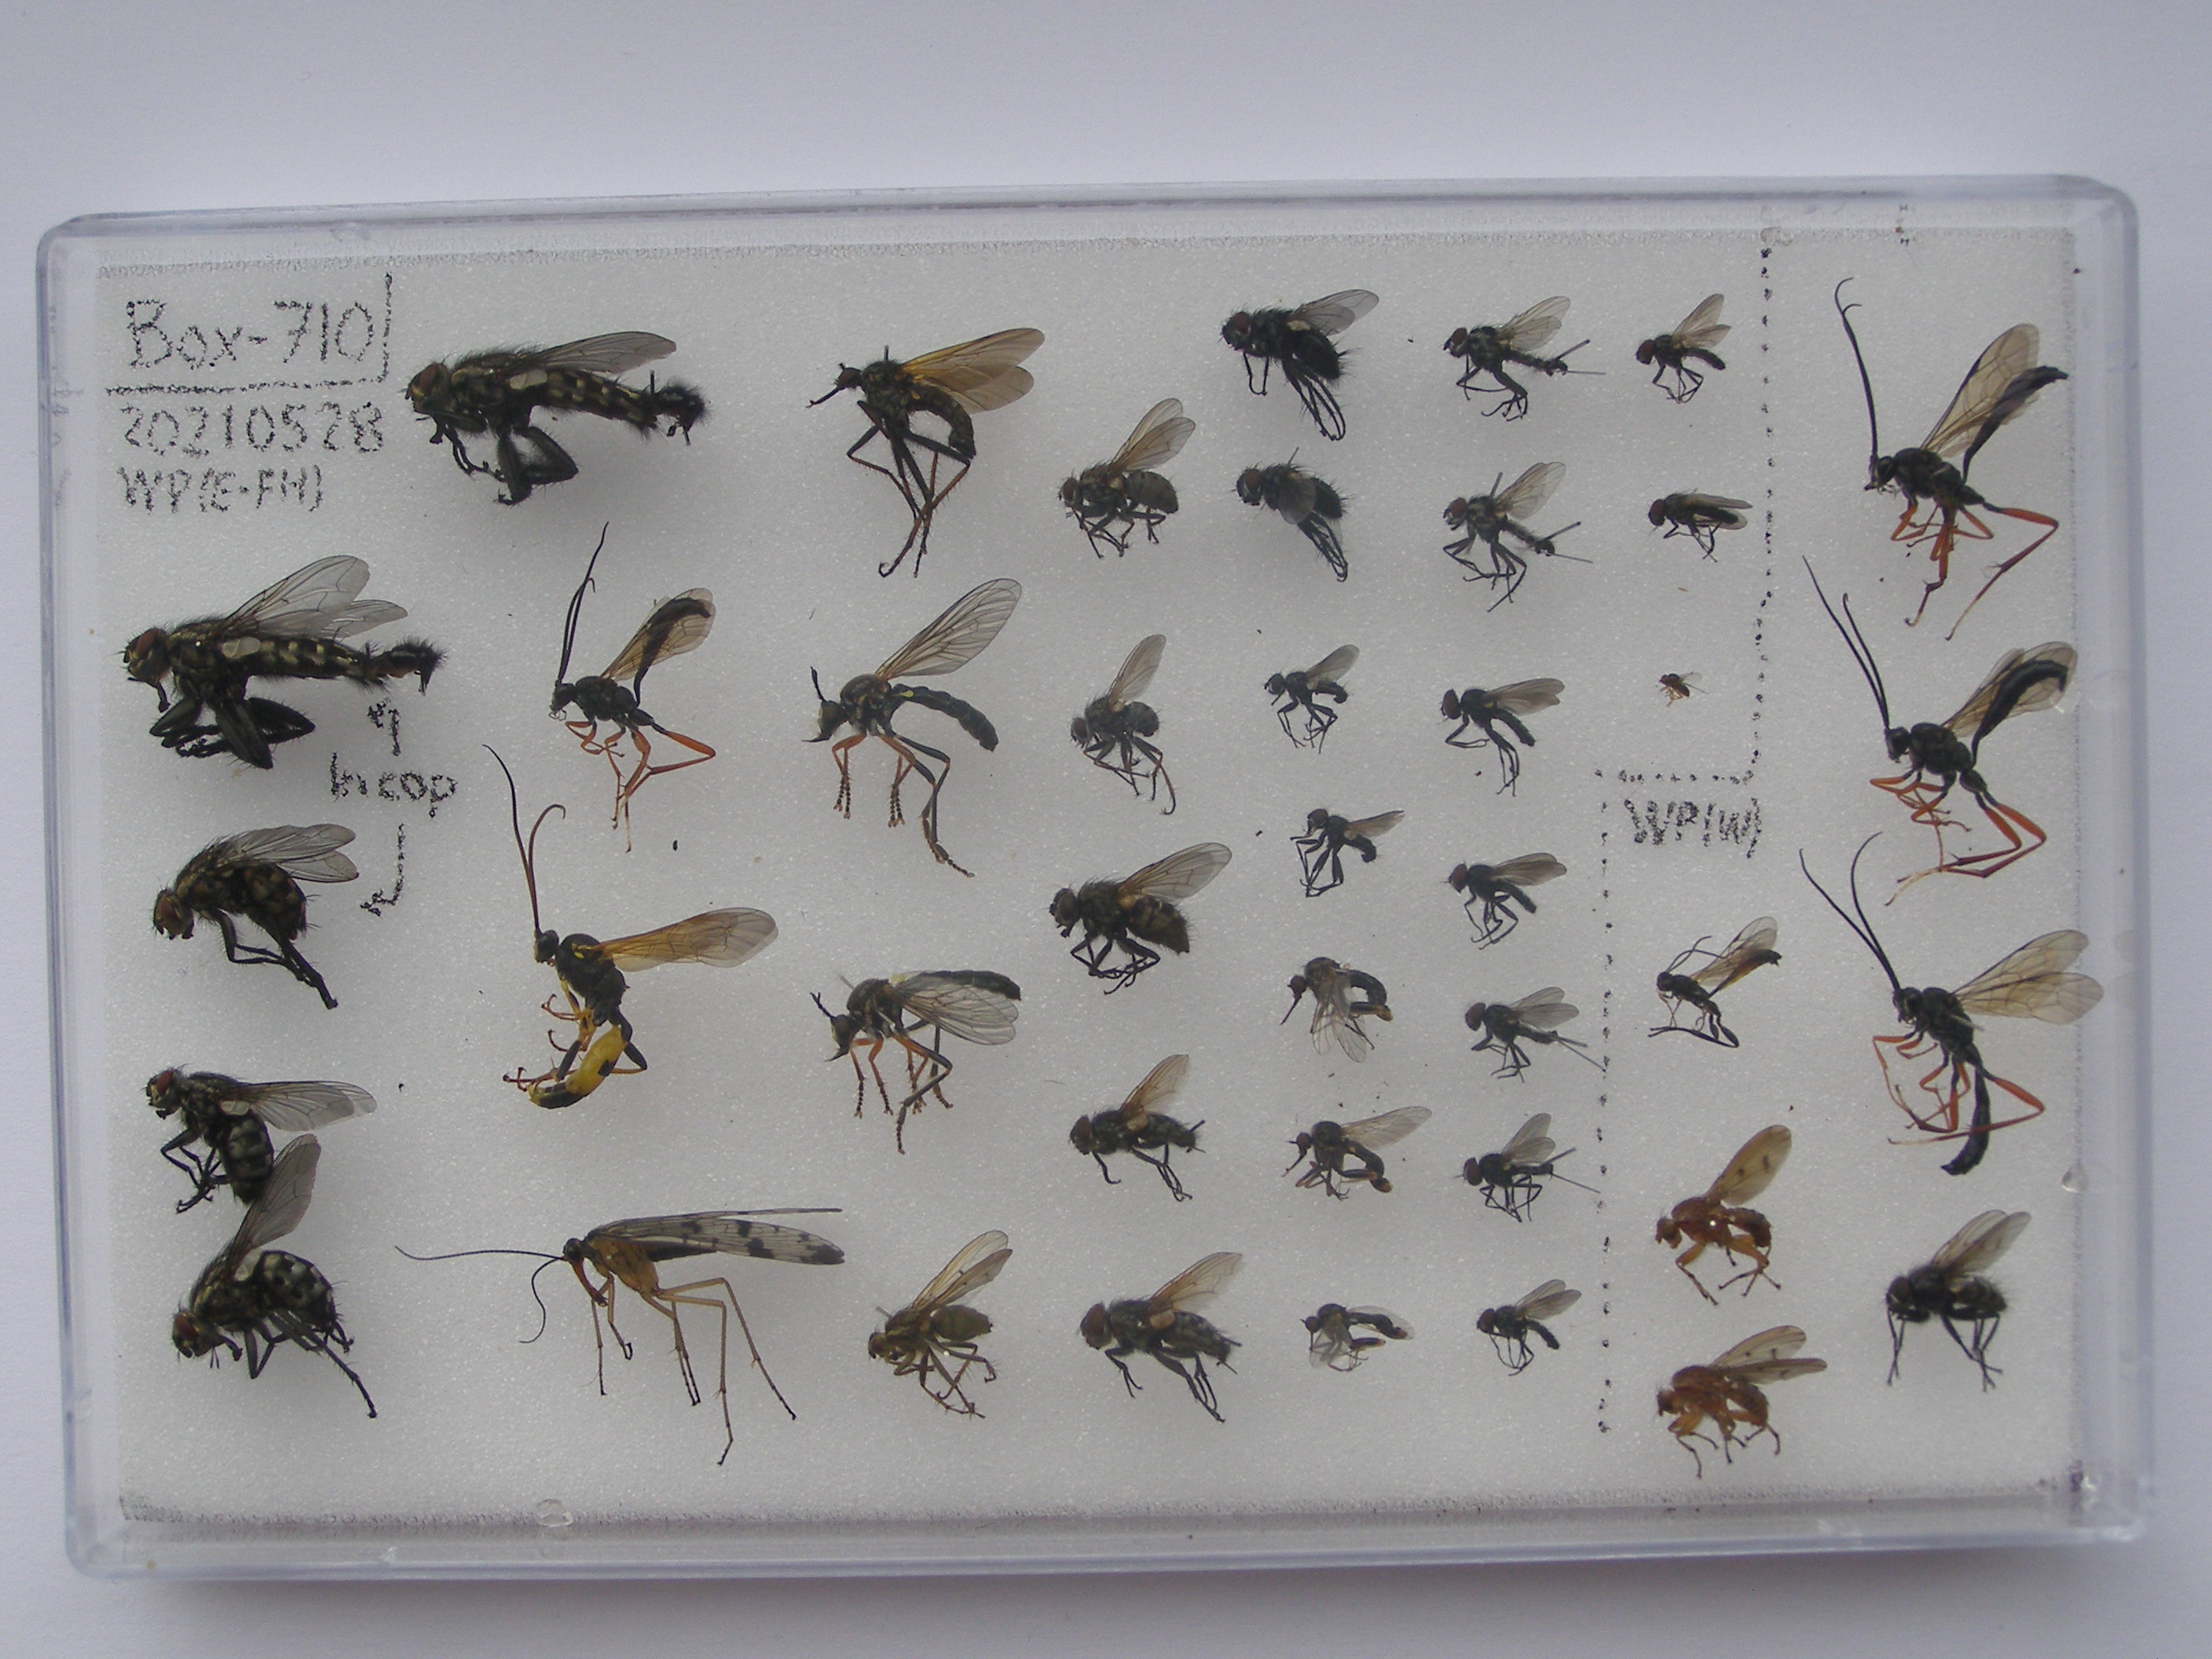 Box-710
20210528
WP(E-FH)
In cop
WP(W)